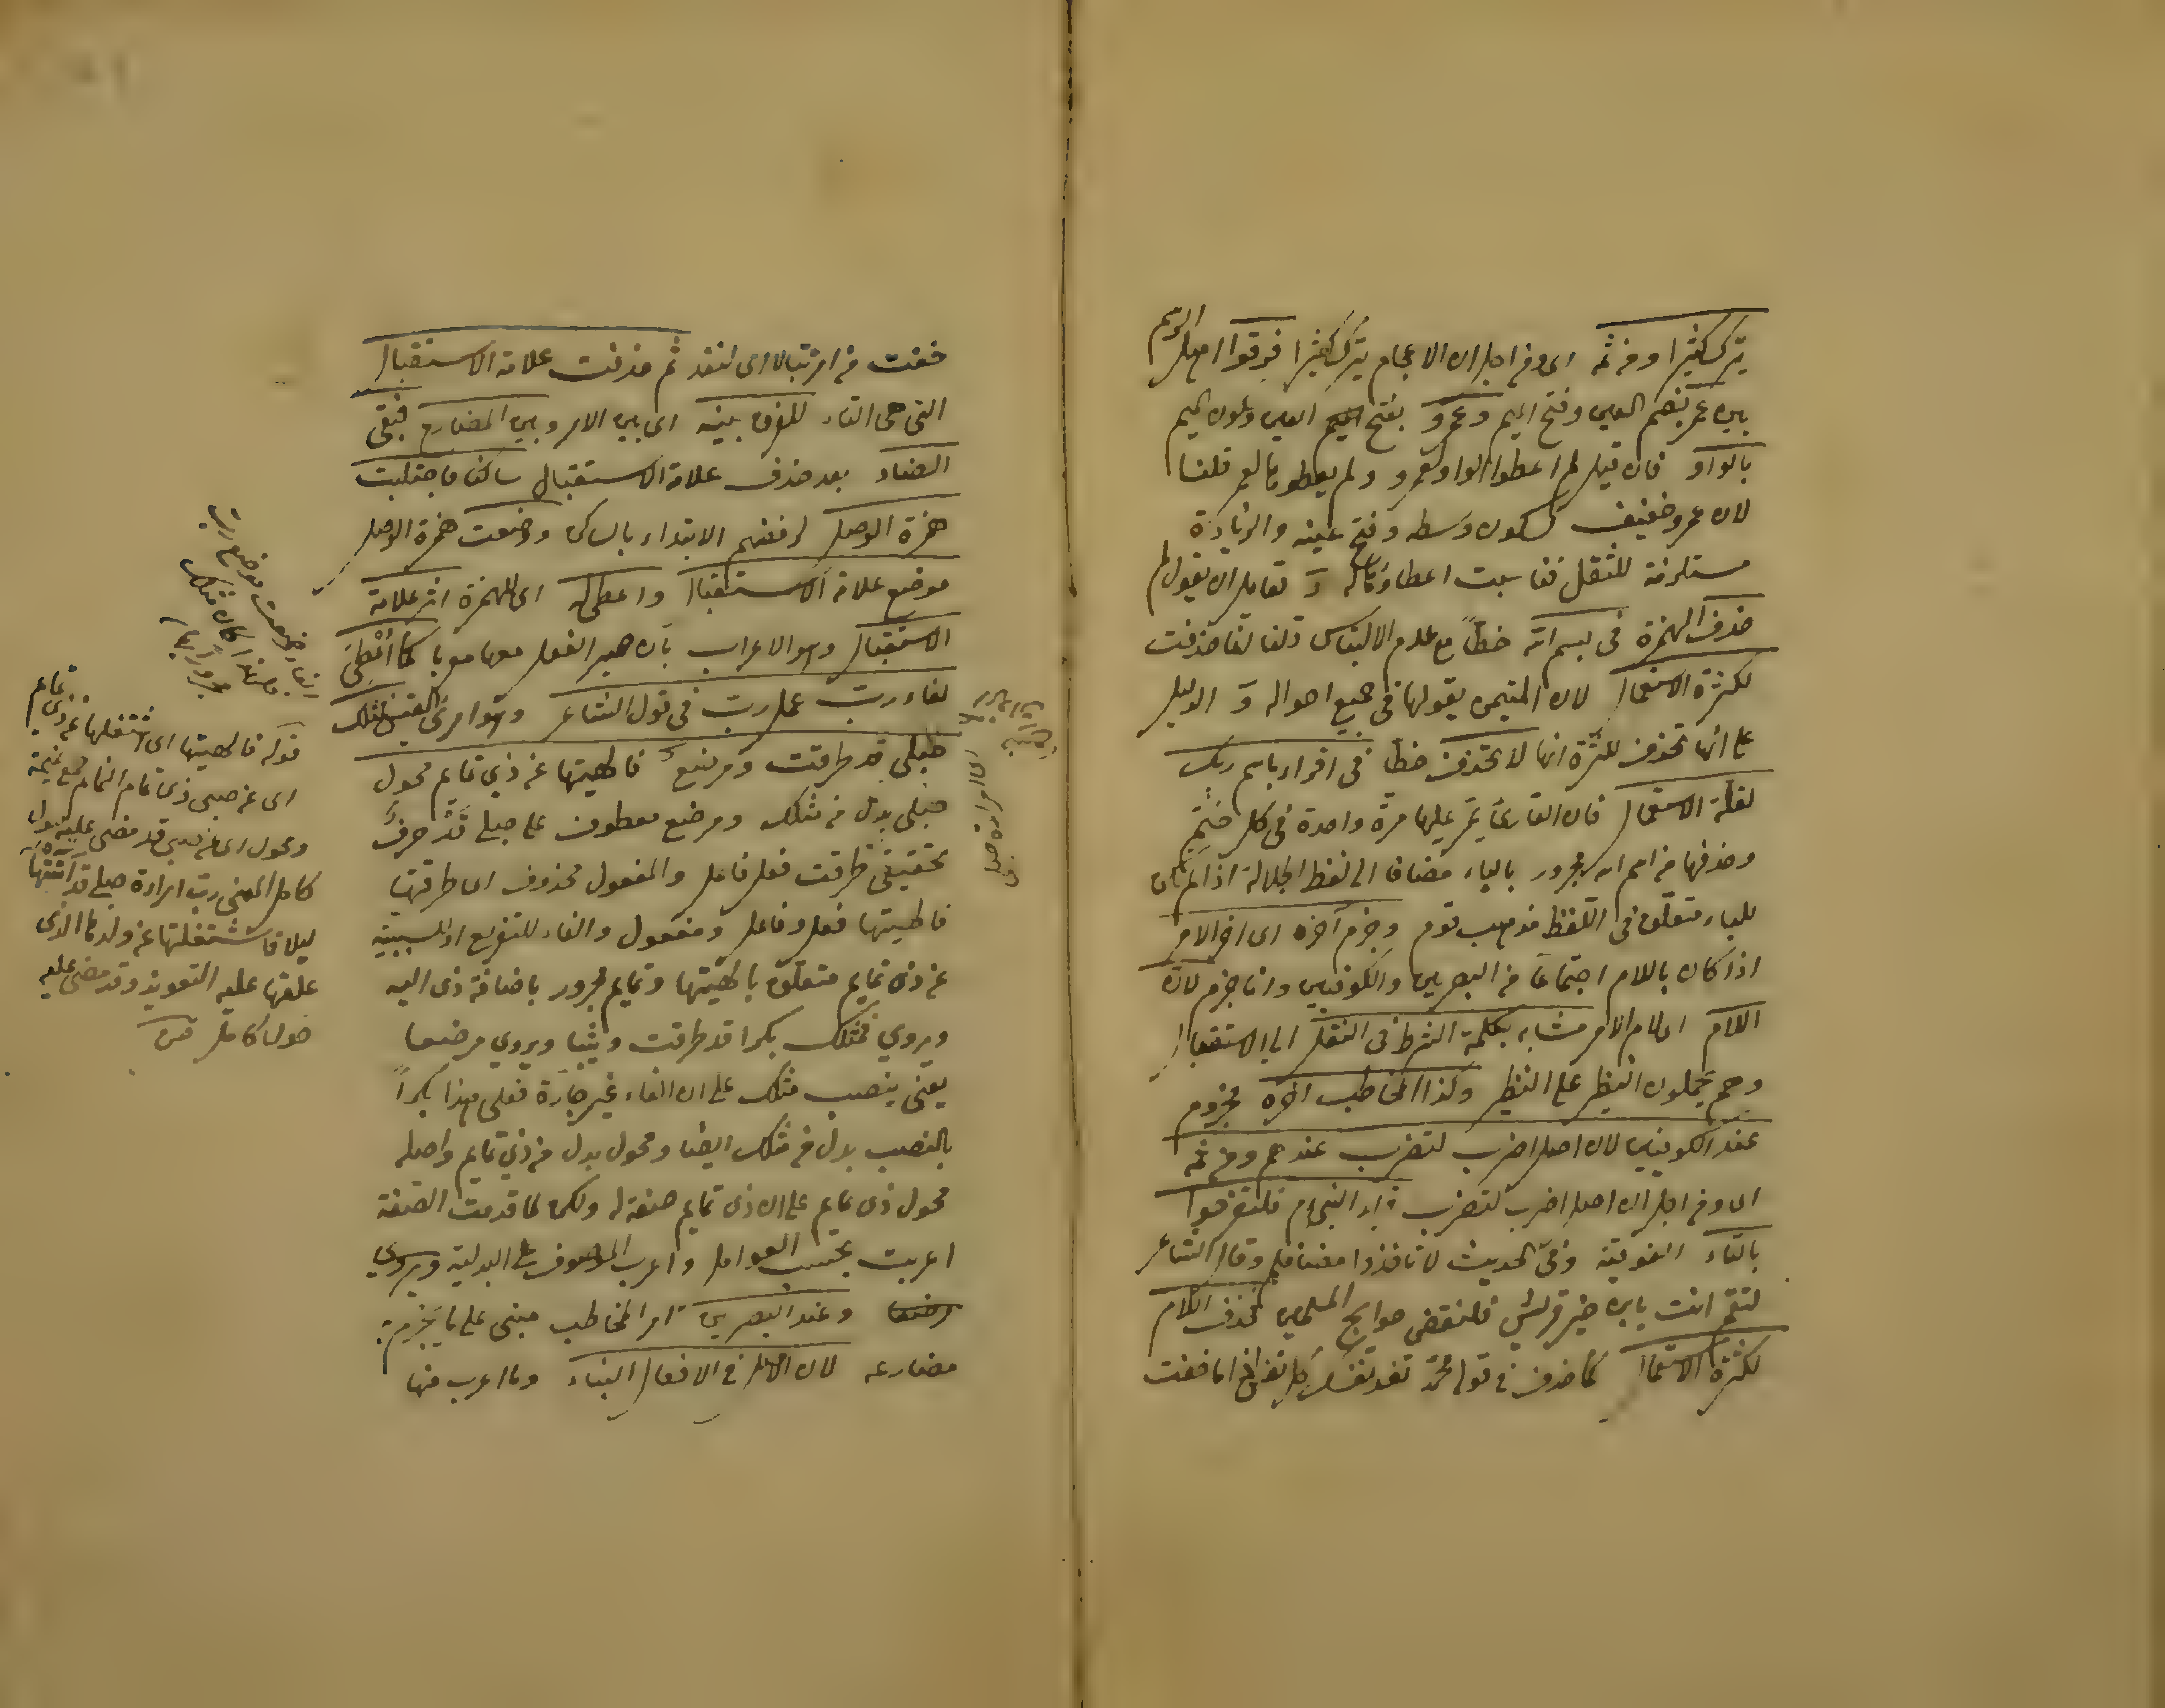 يترك كثيرا ومن ثمه اى ومن اجل ان الاعجام يترك كثيرا فرقوا اهل الرسم
بين عمر بضم العين وفتح الميم وعمرو بفتح العين وسكون الميم
بالواو فان قيل لم اعطوا الواو لعمرو ولم يعطوها لعمر قلنا
لان عمرو خفيف لسكون وسطه وفتح عينه والزيادة
مستلزمة للثقل فناسبت اعطاؤها له و لقايل ان يقول لم
حذف الهمزة فى بسم الله خطاً مع عدم الالتباس قلنا انما حذفت
لكثرة الاستعمال لان المتيمن يقولها فى جميع احواله و الدليل
على انها تحذف للكثرة انها لا تحذف خطا فى اقراء باسم ربك
لقلة الاستعمال فان القارئ يمر عليها مرة واحدة فى كل ختم
وحذفها من اسم الله مجرور بالباء مضافا الى لفظ الجلالة اذا لم يكن
للباء متعلق فى اللفظ مذهب قوم وجزم آخره اى اخر الامر
اذا كان باللام اجتماعا من البصريين والكوفيين وانما جزم لان
اللام اى لام الامر مشابه بكلمة الشرط فى النقل الى الاستقبال
وهم يحملون النظير على النظير وكذا المخاطب اخره مجزوم
عند الكوفيين لان اصل اضرب لتضرب عندهم ومن ثمه
اى ومن اجل ان اصل اضرب لتضرب قراء النبى م فلتفرحوا
بالتاء الفوقية وفى الحديث لتأخذوا مصافكم وقال الشاعر
لتقم انت يابن خير قريش فلتقضى حوايج المسلمين فحذف اللام
لكثرة الاستعمال كما حذف فى قوله محمد تفد نفسك كل نفس اذا ما خفت
خفت من امر تبالا اى لتفد ثم حذفت علامة الاستقبال
التى هى التاء للفرق بينه اى بين الامر وبين المضارع فبقى
الضاد بعد حذف علامة الاستقبال ساكنا فاجتلبت
همزة الوصل لرفضهم الابتداء بالساكن ووضعت همزة الوصل
موضع علامة الاستقبال واعطى له اى للهمزة اثر علامة
الاستقبال وهو الاعراب بان صير الفعل معها معربا كما اُعطى
لفاء رب عمل رب فى قول الشاعر وهو امرئ القيس فمثلك
حبلى قد طرقت ومرضع فالهيتها عن ذى تمايم محول
حبلى بدل من مثلك ومرضع معطوف على حبلى قد حرف
تحقيقى طرقت فعل فاعل والمفعول محذوف اى طرقتها
فالهيتها فعل وفاعل ومفعول والفاء للتفريع او للسببية
عن ذى تمايم متعلق بالهيتها وتمايم مجرور باضافة ذى اليه
ويروي فمثلك بكرا قد طرقت وثيبا ويروي مرضعا
يعنى بنصب مثلك على ان الفاء غير جارة فعلى هذا بكراً
بالنصب بدل من مثلك ايضا ومحول بدل من ذى تمايم واصله
محول ذى تمايم على ان ذى تمايم صفة له ولكن لما قدمت الصفة
اعربت بحسب العوامل واعرب الموصوف على البدلية ويروي
وعند البصريين امر المخاطب مبنى على ما يجزم به
مضارعه لان الاصل فى الافعال البناء وما اعرب منها
قوله فالهيتها اى شغلتها عن ذى تمايم
اى عن صبى ذى تمايم التمايم جمع تميمة
ومحول اى عن صبى قد مضى عليه حول
كامل المعنى رب امراءة حبلى قد اتيتها
ليلا فاشتغلتها عن ولدها الذى
علقها عليه التعويذ وقد مضى عليه
حول كامل